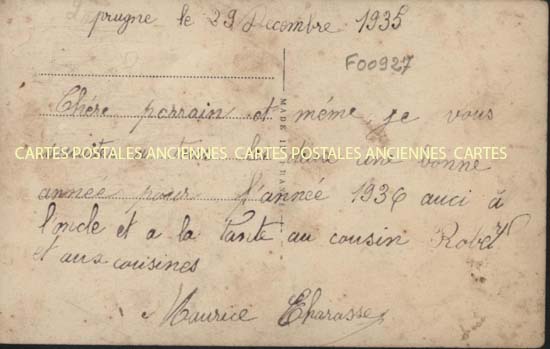 Laprugne le 29 décembre 1935
F00927
MADE IN FRANCE
Chère parrain et même, je vous
une bonne
CARTES POSTALES ANCIENNES CARTES POSTALES ANCIENNES CARTES
année pour l'année 1936 auci à
l'oncle et a la Tante au cousin Robert
et aux cousines
Maurice Charasse